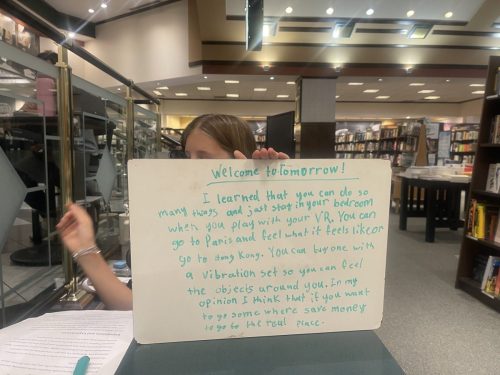 Welcome to Tomorrow!
I learned that you can do so
many things and just stay in your bedroom
when you play with your VR. You can
go to Paris and feel what it feels like or
go to Hong Kong. You can buy one with
a vibration set so you can feel
the objects around you. In my
opinion I think that if you want
to go some where save money
to go to the real place.